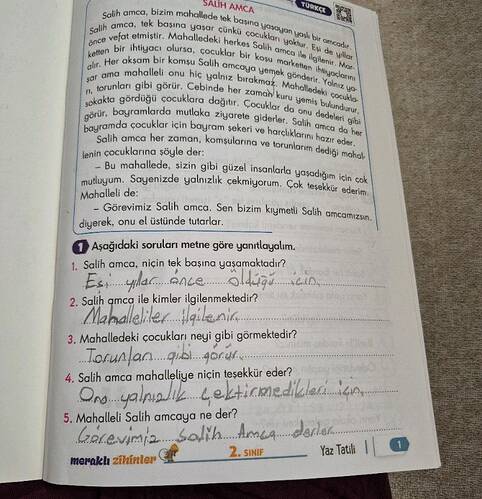 SALİH AMCA
TÜRKÇE
Salih amca, bizim mahallede tek başına yaşayan yaşlı bir amcadır.
Salih amca, tek başına yaşar çünkü çocukları yoktur. Eşi de yıllar
önce vefat etmiştir. Mahalledeki herkes Salih amca ile ilgilenir. Mar-
ketten bir ihtiyacı olursa, çocuklar bir koşu marketten ihtiyaçlarını
alır. Her akşam bir komşu Salih amcaya yemek gönderir. Yalnız ya-
şar ama mahalleli onu hiç yalnız bırakmaz. Mahalledeki çocukla-
rı, torunları gibi görür. Cebinde her zaman kuru yemiş bulundurur,
sokakta gördüğü çocuklara dağıtır. Çocuklar da onu dedeleri gibi
görür, bayramlarda mutlaka ziyarete giderler. Salih amca da her
bayramda çocuklar için bayram şekeri ve harçlıklarını hazır eder.
Salih amca her zaman, komşularına ve torunlarım dediği mahal-
lenin çocuklarına şöyle der:
– Bu mahallede, sizin gibi güzel insanlarla yaşadığım için çok
mutluyum. Sayenizde yalnızlık çekmiyorum. Çok teşekkür ederim.
Mahalleli de:
– Görevimiz Salih amca. Sen bizim kıymetli Salih amcamızsın.
diyerek, onu el üstünde tutarlar.
1 Aşağıdaki soruları metne göre yanıtlayalım.
1. Salih amca, niçin tek başına yaşamaktadır?
Eşi yıllar önce öldüğü için.
2. Salih amca ile kimler ilgilenmektedir?
Mahalleliler ilgilenir.
3. Mahalledeki çocukları neyi gibi görmektedir?
Torunları gibi görür.
4. Salih amca mahalleliye niçin teşekkür eder?
Onu yalnızlık çektirmedikleri için.
5. Mahalleli Salih amcaya ne der?
Görevimiz Salih Amca derler
meraklı zihinler
2. SINIF
Yaz Tatili
1